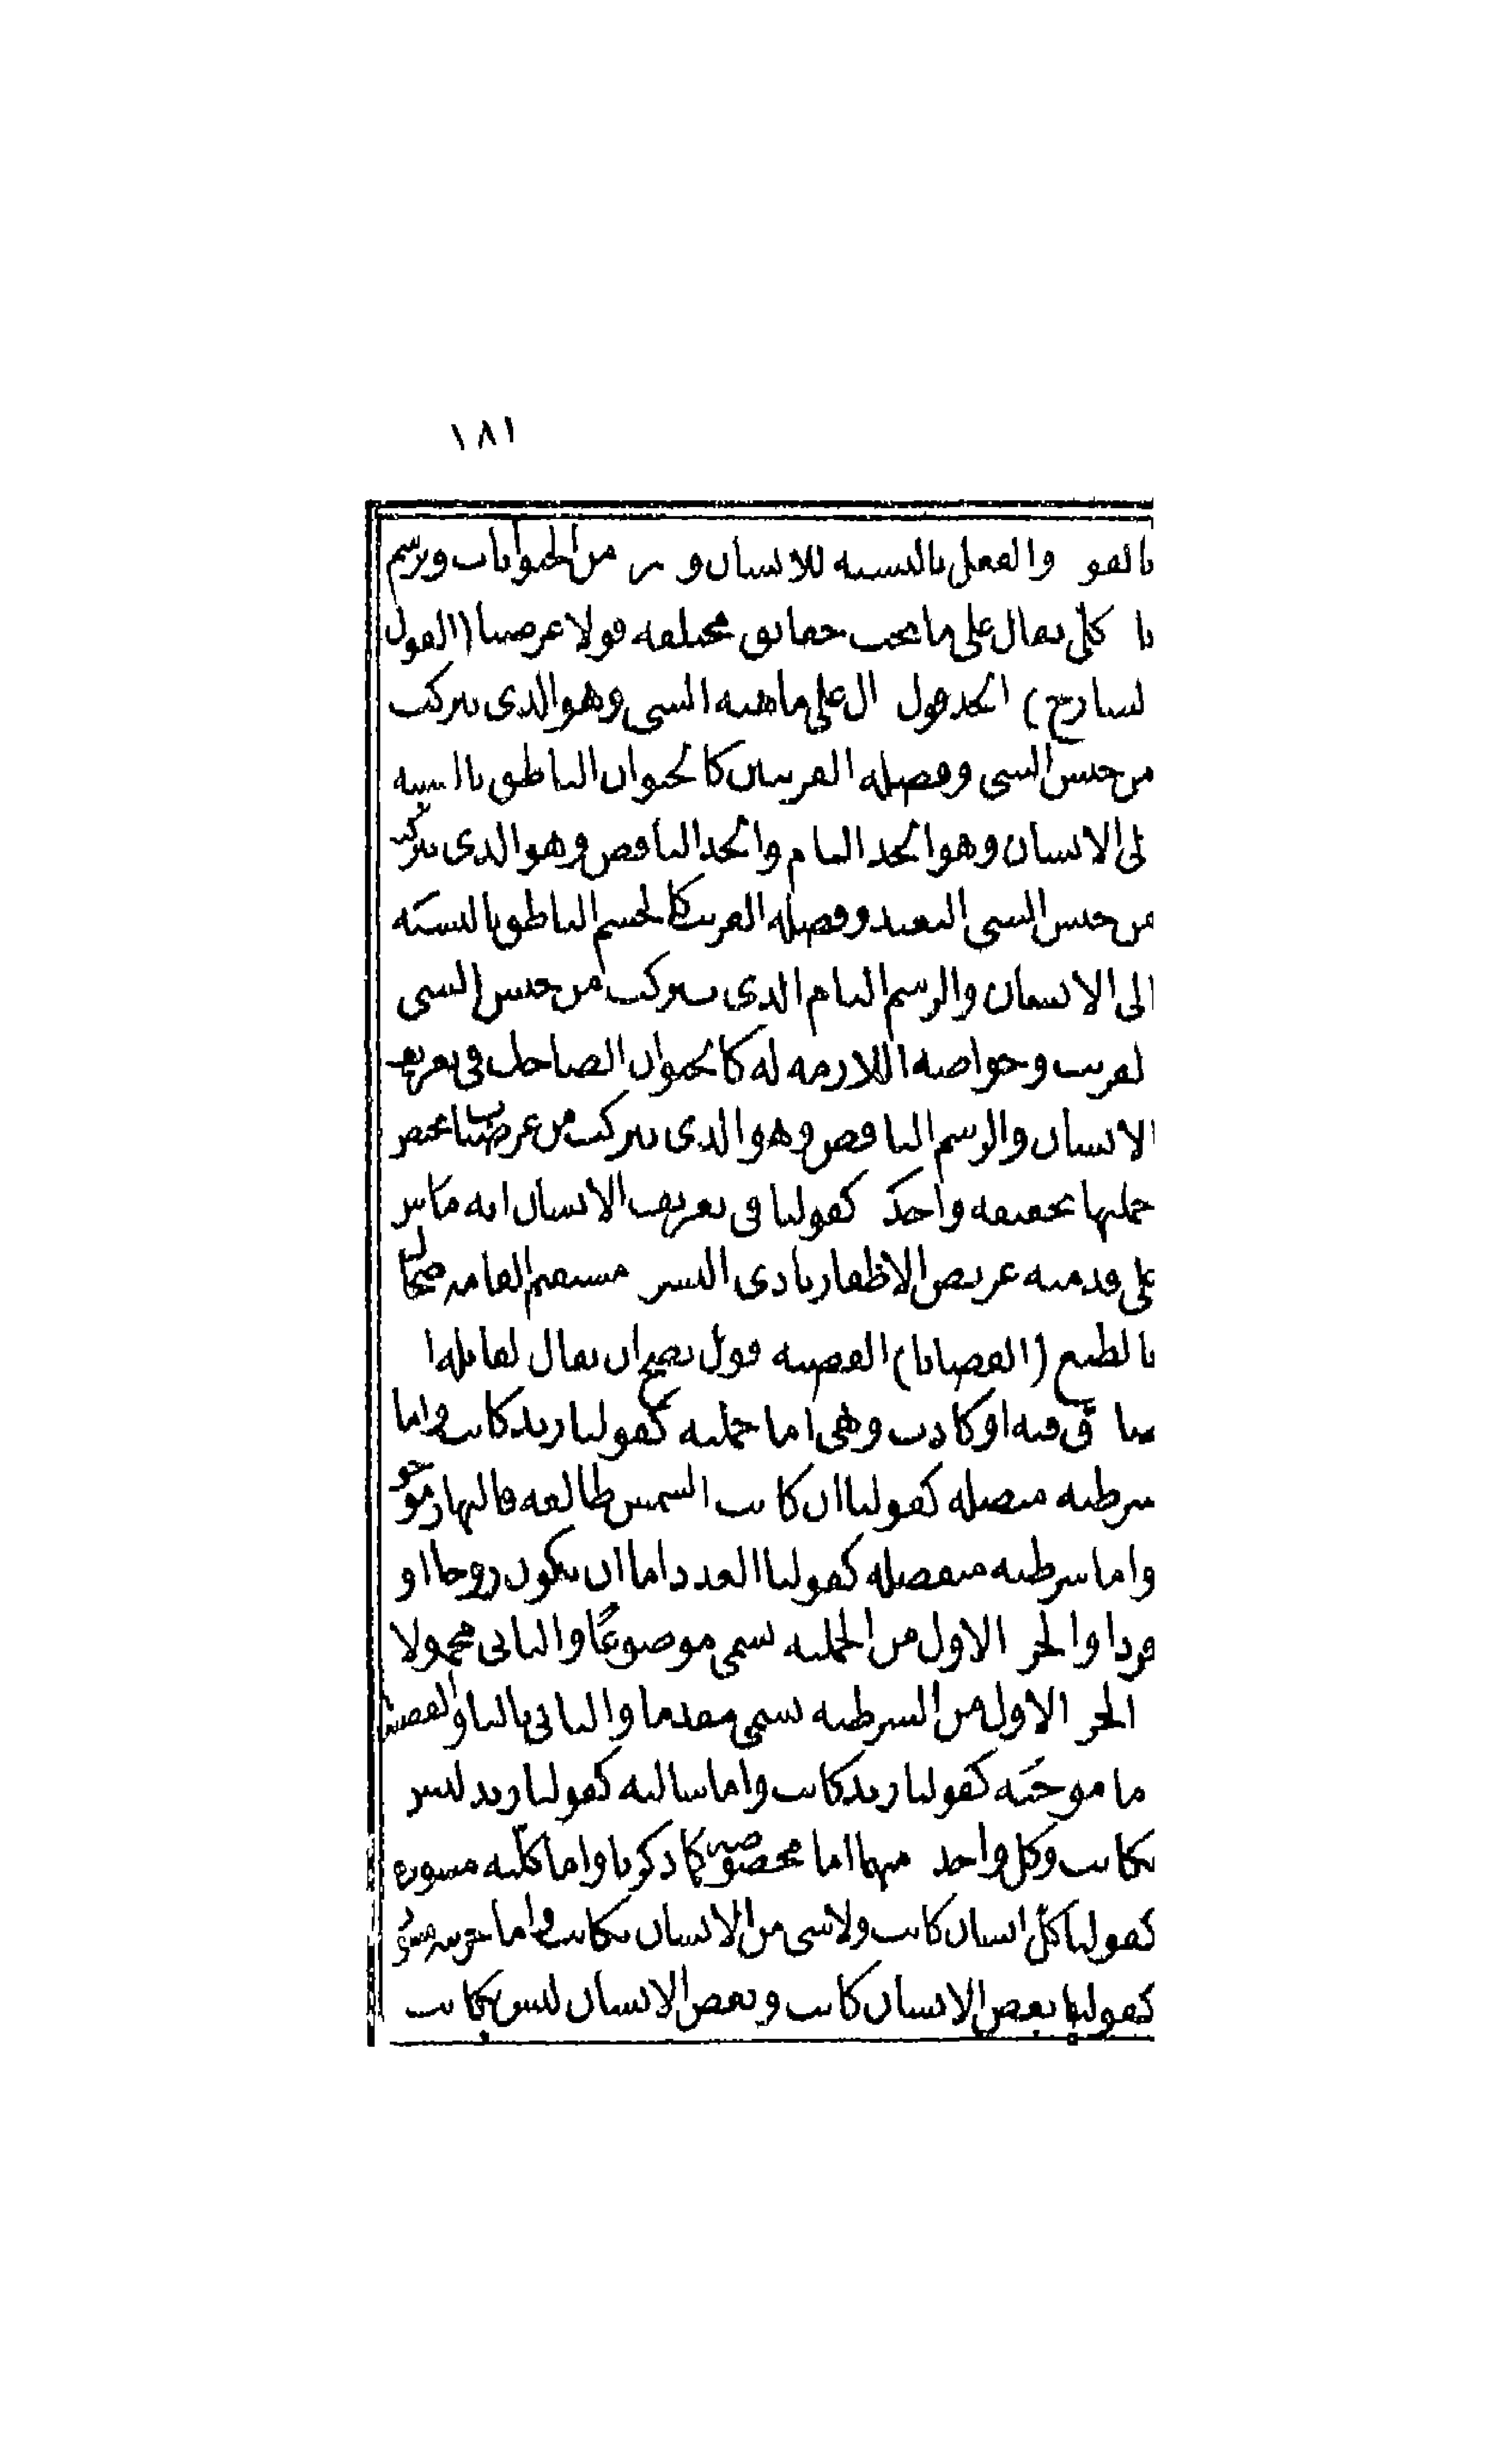 ١٨١
بالقو والفعل بالنسبة للانسان و من الحيوانات ويرسم
با كلى يقال على ما تحت حقايق مختلفة قولا عرضيا (القول
لشارح) الحد قول ال على ماهية الشى وهو الذى يتركب
من جنس الشى وفصله القريبين كالحيوان الناطق بالنسبة
لى الانسان وهو الحد التام والحد الناقص وهو الذى يتركب
من جنس الشى البعيد وفصله القريب كالجسم الناطق بالنسبة
الى الانسان والرسم التام الذى يتركب من جنس الشى
لقريب وخواصه اللازمة له كالحيوان الضاحك فى تعريف
الانسان والرسم الناقص وهو الذى يتركب من عرضيات تختص
جملتها بحقيقة واحدة كقولنا فى تعريف الانسان انه ماش
على قدميه عريض الاظفار بادى البشر مستقيم القامة ضحاك
بالطبع (القضايا) القضية قول يصح ان يقال لقايله ا
صا ق فيه او كاذب وهى اما حملية كقولنا زيد كاتب واما
شرطية متصلة كقولنا ان كانت الشمس طالعة فالنهار موجو
واما شرطية منفصلة كقولنا العدد اما ان يكون زوجا او
فردا والجز الاول من الحملية يسمى موضوعًا والثانى محمولا
الجز الاول من الشرطية يسمى مقدما والثانى تاليا والقضية
ما موجبة كقولنا زيد كاتب واما سالبة كقولنا زيد ليس
بكاتب وكل واحد منهما اما مخصوصة كما ذكرنا واما كلّية مسورة
كقولنا كلّ انسان كاتب ولا شى من الانسان بكاتب واما جزئية مسورة
كقولنا بعض الانسان كاتب وبعض الانسان ليس بكاتب